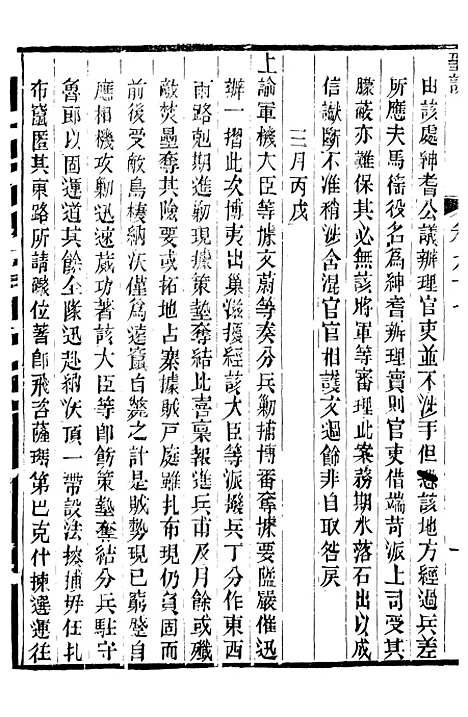 聖訓
由該處紳耆公議辦理官吏並不涉手但恐該地方經過兵差
所應夫馬徭役名爲紳耆辦理實則官吏借端苛派上司受其
朦蔽亦難保其必無該將軍等審理此案務期水落石出以成
信讞斷不准稍涉含混官官相護文過飾非自取咎戾
三月丙戌
上諭軍機大臣等據文蔚等奏分兵勦捕博番奪據要隘嚴催迅
辦一摺此次博夷出巢滋擾經該大臣等派撥兵丁分作東西
兩路剋期進勦現據策墊奪結比喜稟報進兵甫及月餘或殲
敵焚壘奪其險要或拓地占寨據賊戸庭雖扎布現仍負固而
前後受敵鳥棲納沃僅爲遠竄自斃之計是賊勢現已窮蹙自
應相機攻勦迅速蕆功著該大臣等卽飭策墊奪結分兵駐守
魯郎以固運道其餘全隊迅赴納沃頂一帶設法搜捕毋任扎
布竄匿其東路所請職位著卽飛咨薩瑪第巴克什揀選運往